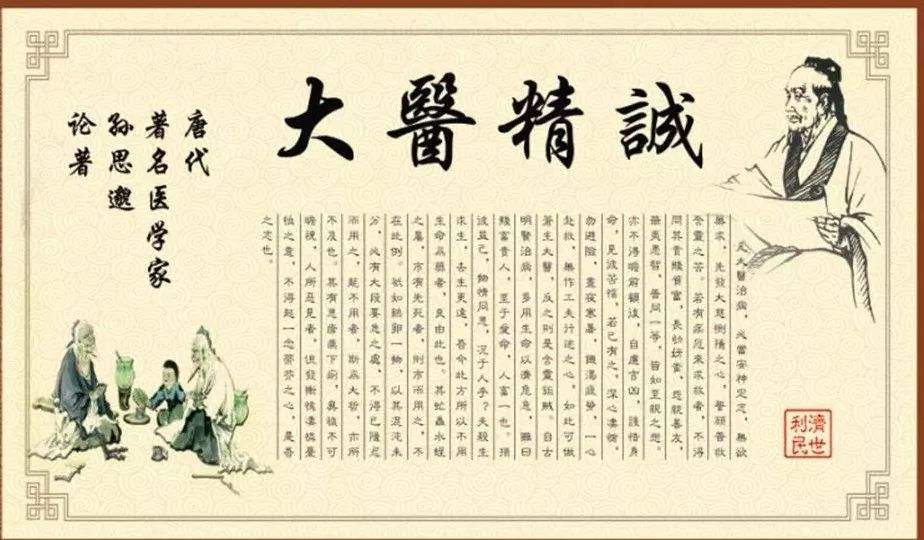 大醫精誠
唐代
著名医学家
孙思邈
论著
凡大醫治病，必當安神定志，無欲
無求，先發大慈惻隱之心，誓願普救
含靈之苦。若有疾厄來求救者，不得
問其貴賤貧富，長幼妍蚩，怨親善友，
華夷愚智，普同一等，皆如至親之想。
亦不得瞻前顧後，自慮吉凶，護惜身
命，見彼苦惱，若己有之，深心悽愴，
勿避險，晝夜寒暑，饑渴疲勞，一心
赴救，無作工夫行迹之心，如此可做
蒼生大醫，反之則是含靈鉅賊。自古
明賢治病，多用生命以濟危急，雖曰
賤畜貴人，至于愛命，人畜一也。損
彼益己，物情同患，況于人乎？夫殺生
求生，去生更遠，吾今此方所以不用
生命爲藥者，良由此也。其虻蟲水蛭
之屬，市有先死者，則市而用之，不
在此例。祇如雞卵一物，以其混沌未
分，必有大段要急之處，不得已隱忍
而用之，能不用者，斯爲大哲，亦所
不及也。其有患瘡痍下痢，臭穢不可
瞻視，人所惡見者，但發慚愧悽憐憂
恤之意，不得起一念蒂芥之心，是吾
之志也。
濟世
利民